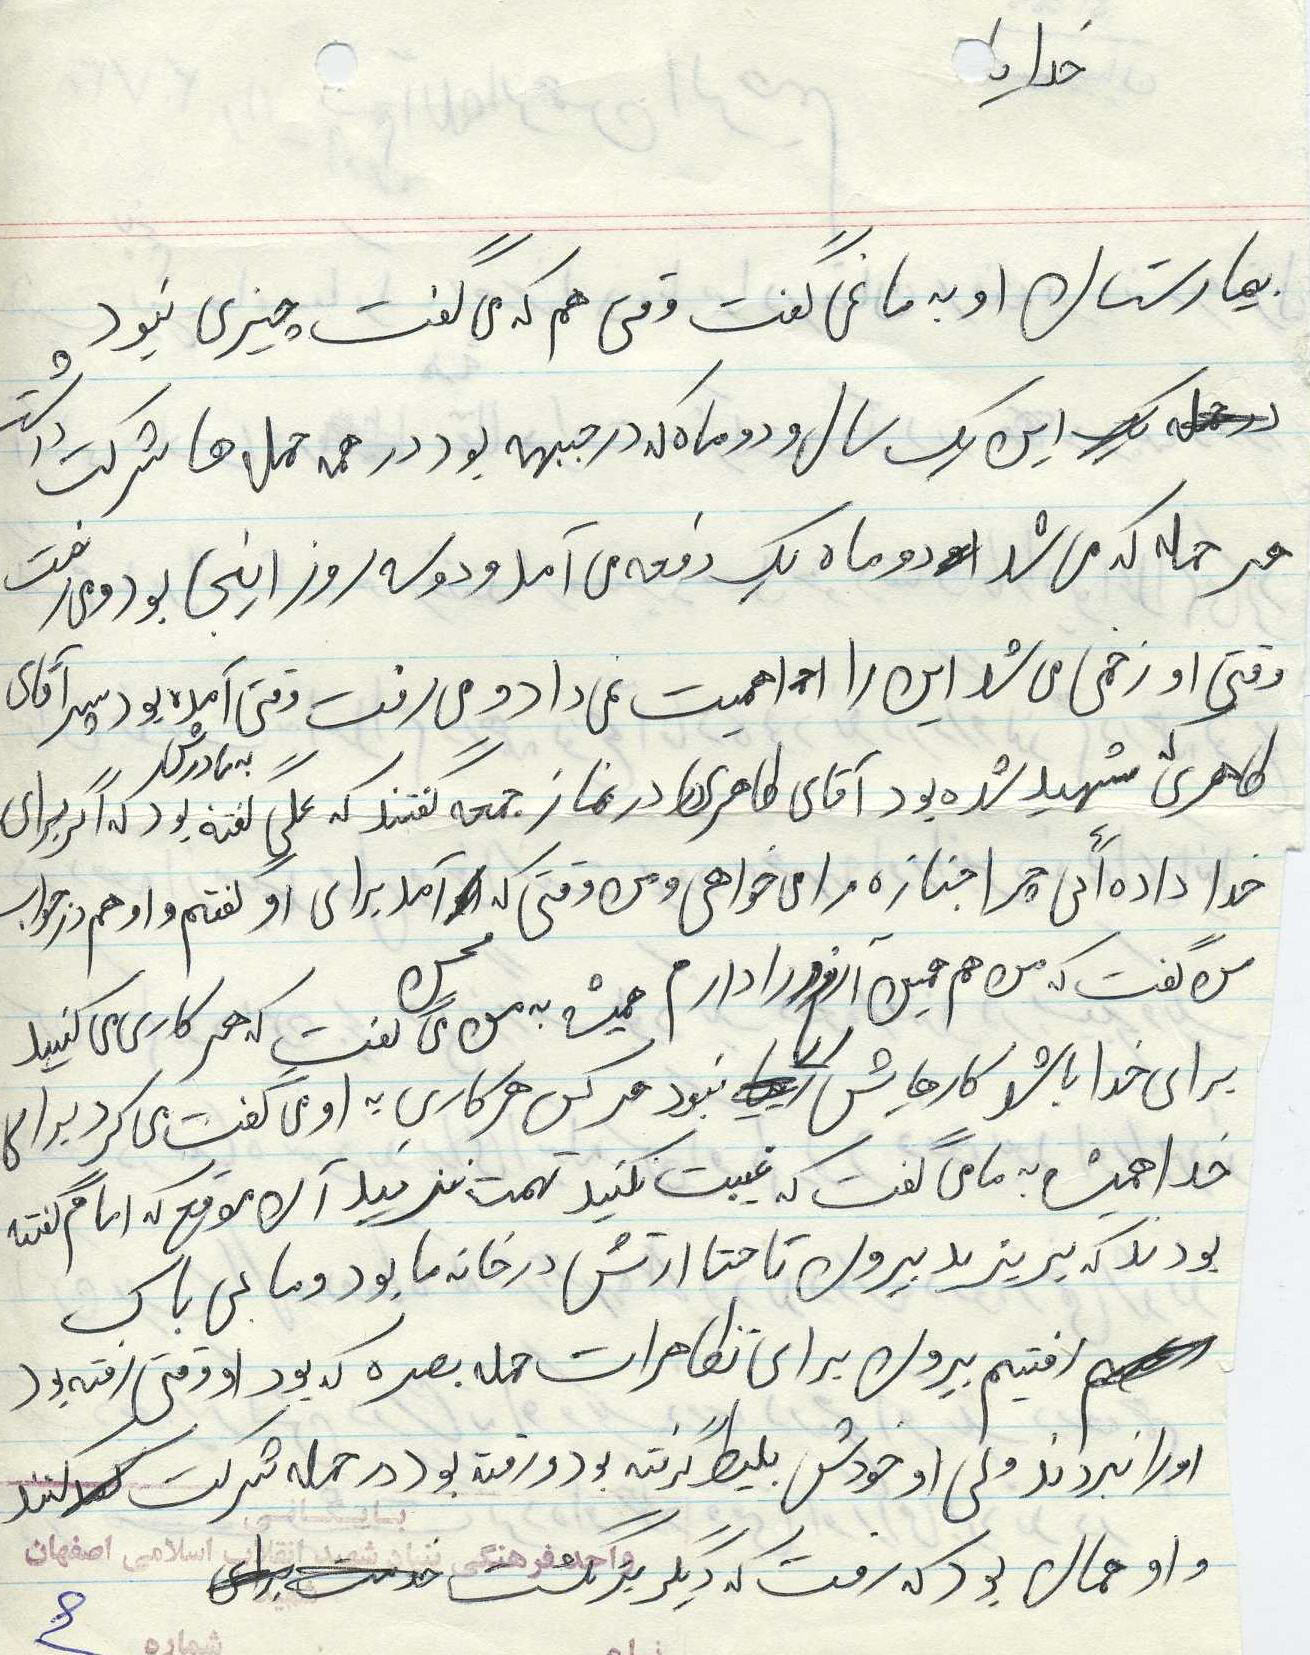 خدایا
بیمارستان او به ما نمی گفت وقتی هم که می گفت چیزی نبود
در حمله یک این یک سال و دو ماه که در جبهه بود در همه حمله ها شرکت داشت
هر حمله که می شد دو ماه یک دفعه می آمد و دو سه روز اینجا بود و می رفت
وقتی او زخمی می شد این را اهمیت نمی داد و می رفت وقتی آمده بود پسر آقای
طاهری که شهید شده بود آقای طاهری در نماز جمعه گفتند که علی گفته بود که اگر برای
به مادرش
خدا داده اي چرا جنازه مرا می خواهی و من وقتی که آمد برای او گفتم و او هم در جواب
من گفت که من هم همین آرزو را دارم همیشه به من می گفت که هر کاری می کنید
محسن
برای خدا باشد کارهایش نبود هر کس هر کاری به او می گفت می کرد برای
خدا همیشه به ما می گفت که غیبت نکنید تهمت نزنید آن موقع که امام گفته
بودند که بریزید بیرون تا حتا ارتش در خانه ما بود و ما بی باک
رفتیم بیرون برای تظاهرات حمله بصره که بود او وقتی رفته بود
او را نبردند ولی او خودش بلیط گرفته بود و رفته بود در حمله شرکت کنند
و او همان بود که رفت که دیگر برنگشت خدمت برای
بایگانی
واحد فرهنگی بنیاد شهید انقلاب اسلامی اصفهان
شماره